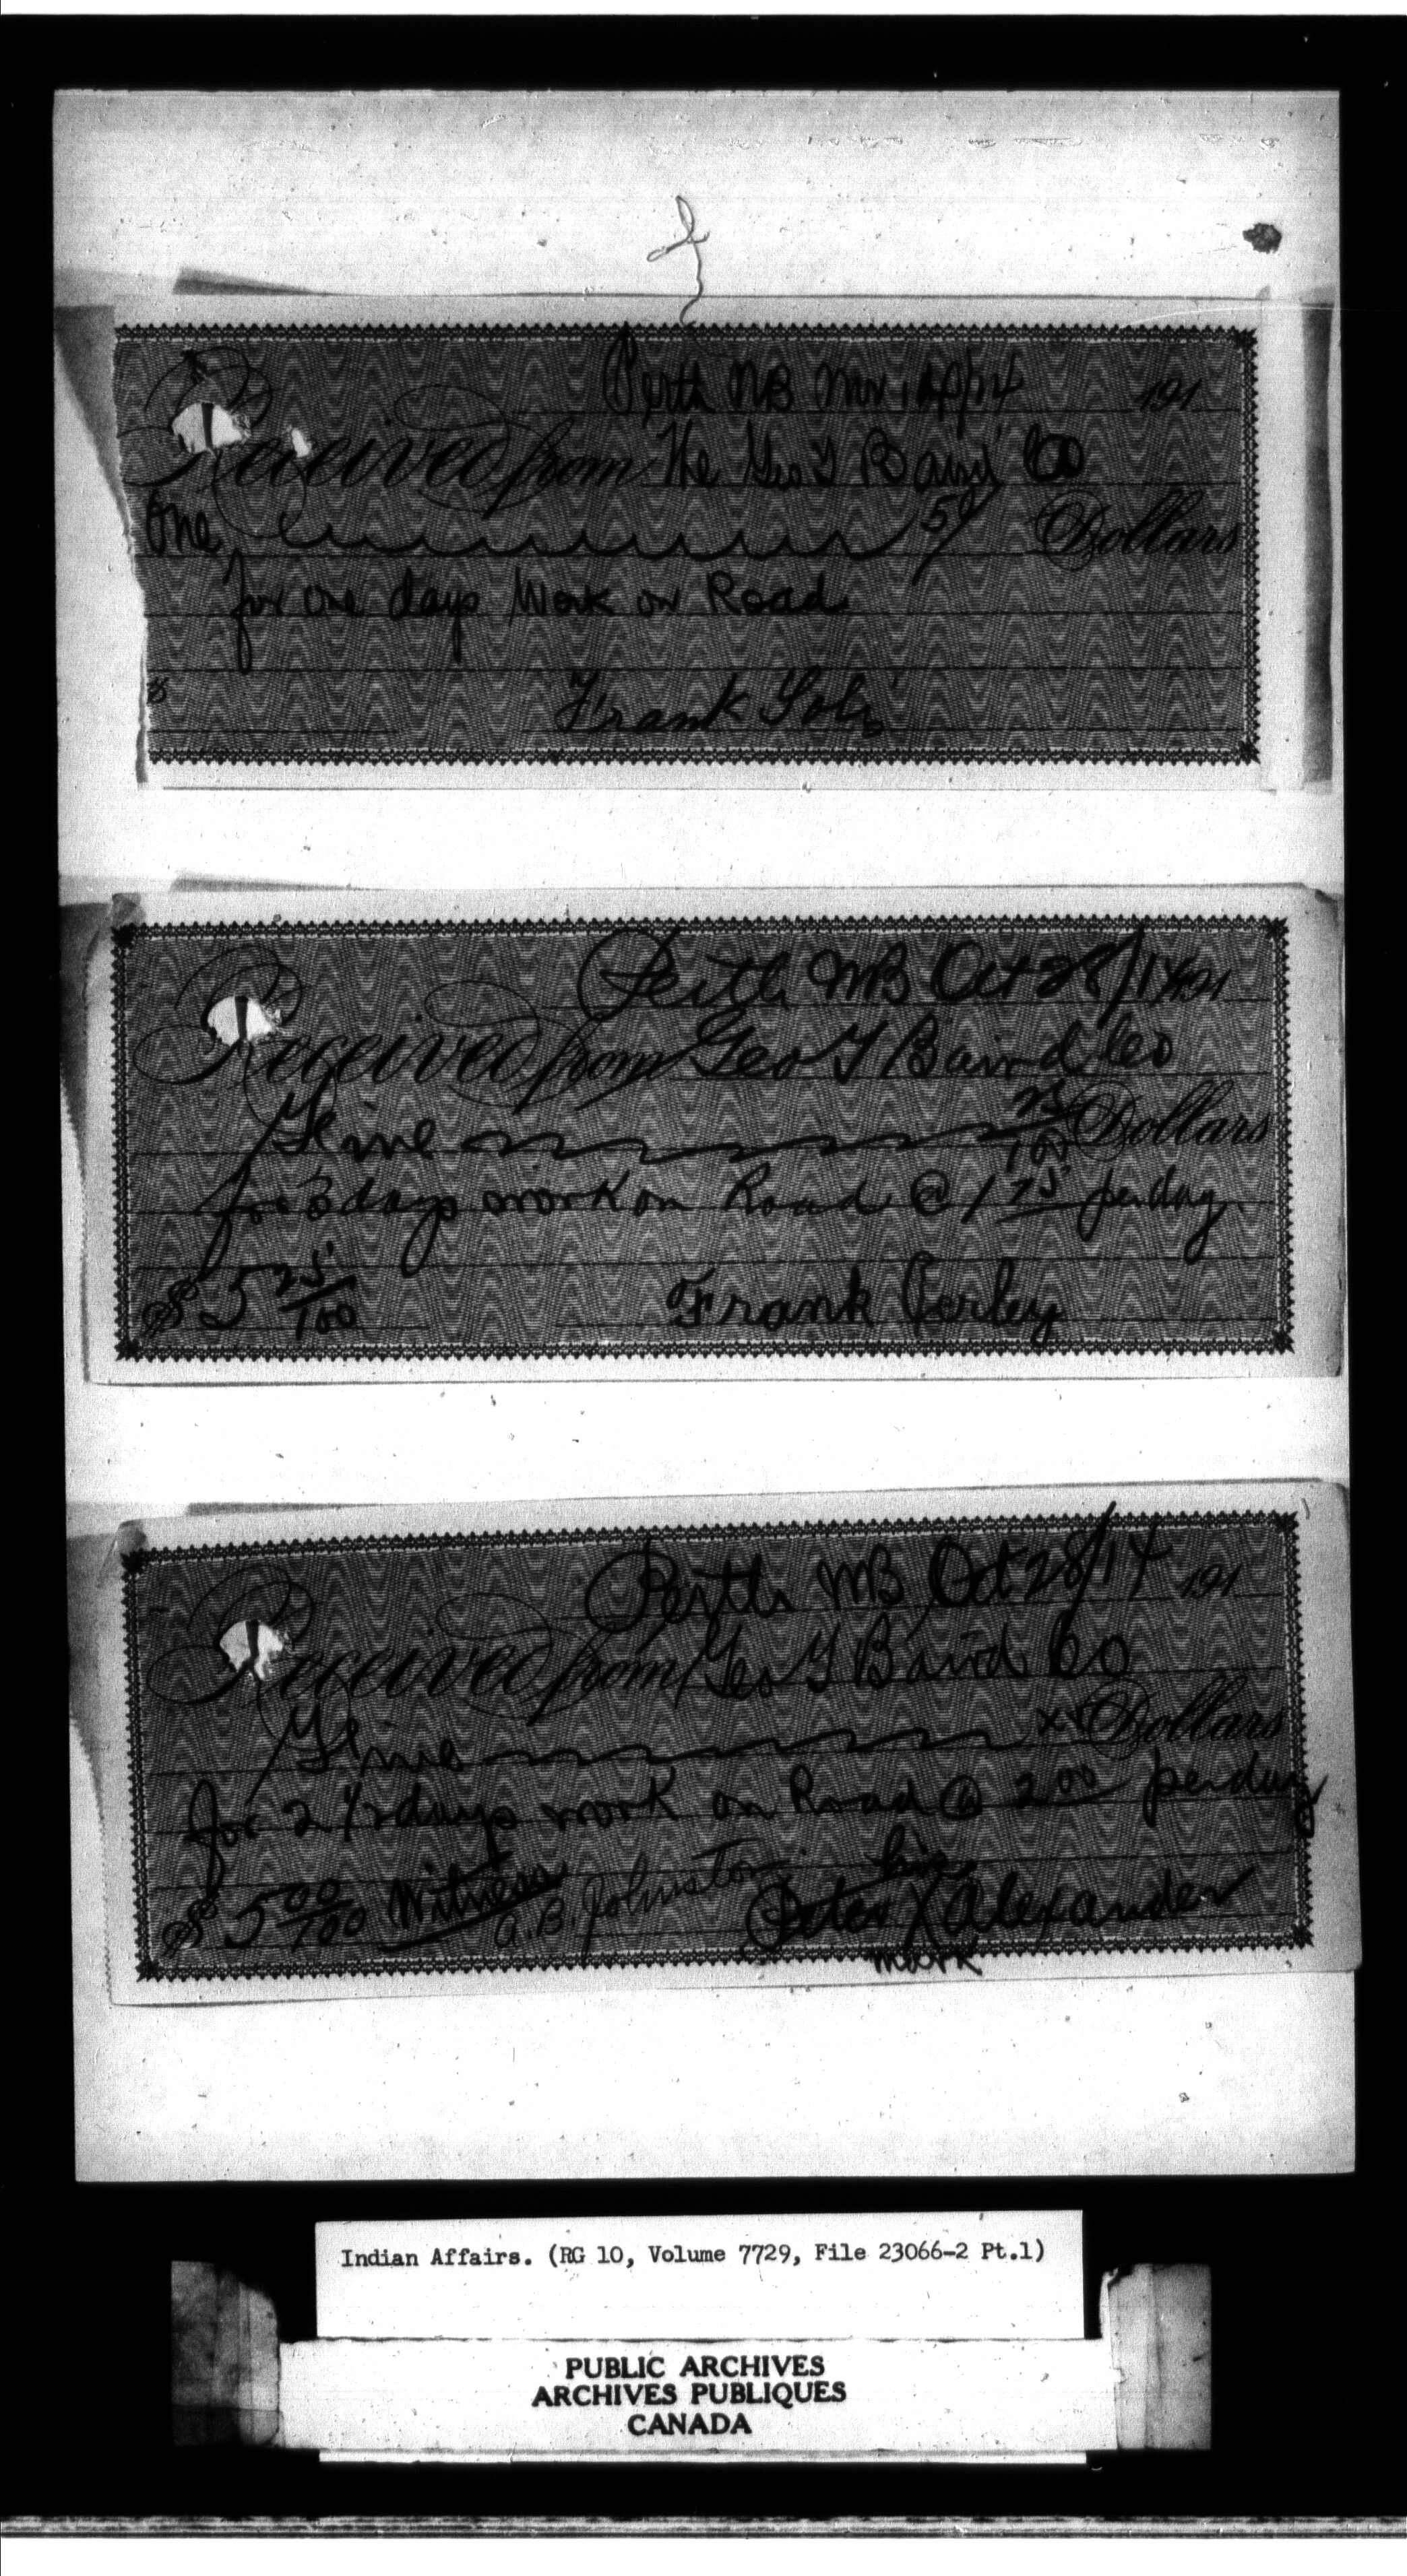 Perth NB Nov 14/14 191
Received from The Geo T Baird Co
One 50/ Dollars
for one days Work on Road
$
Frank
Perth NB Oct 28/14 191
Received from Geo T Baird Co
Five 25/100 Dollars
for 3 days work on Road @ 1 75 per day
$ 5 25/100 Frank Perley
Perth NB Oct 28/14 191
Received from Geo T Baird Co
Five xx Dollars
for 2 1/2 days work on Road @ 2 00 per day
his
$ 5 00/100 Witness A.B. Johnston Peter X Alexander
mark
Indian Affairs. (RG 10, Volume 7729, File 23066-2 Pt.1)
PUBLIC ARCHIVES
ARCHIVES PUBLIQUES
CANADA